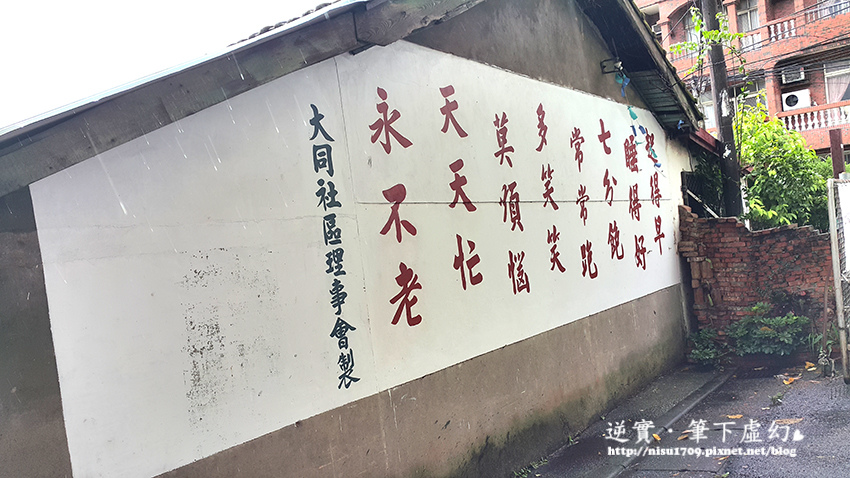 起得早
睡得好
七分飽
常常跑
多笑笑
莫煩惱
天天忙
永不老
大同社區理事會製
逆實·筆下虛幻
http://nisu1709.pixnet.net/blog